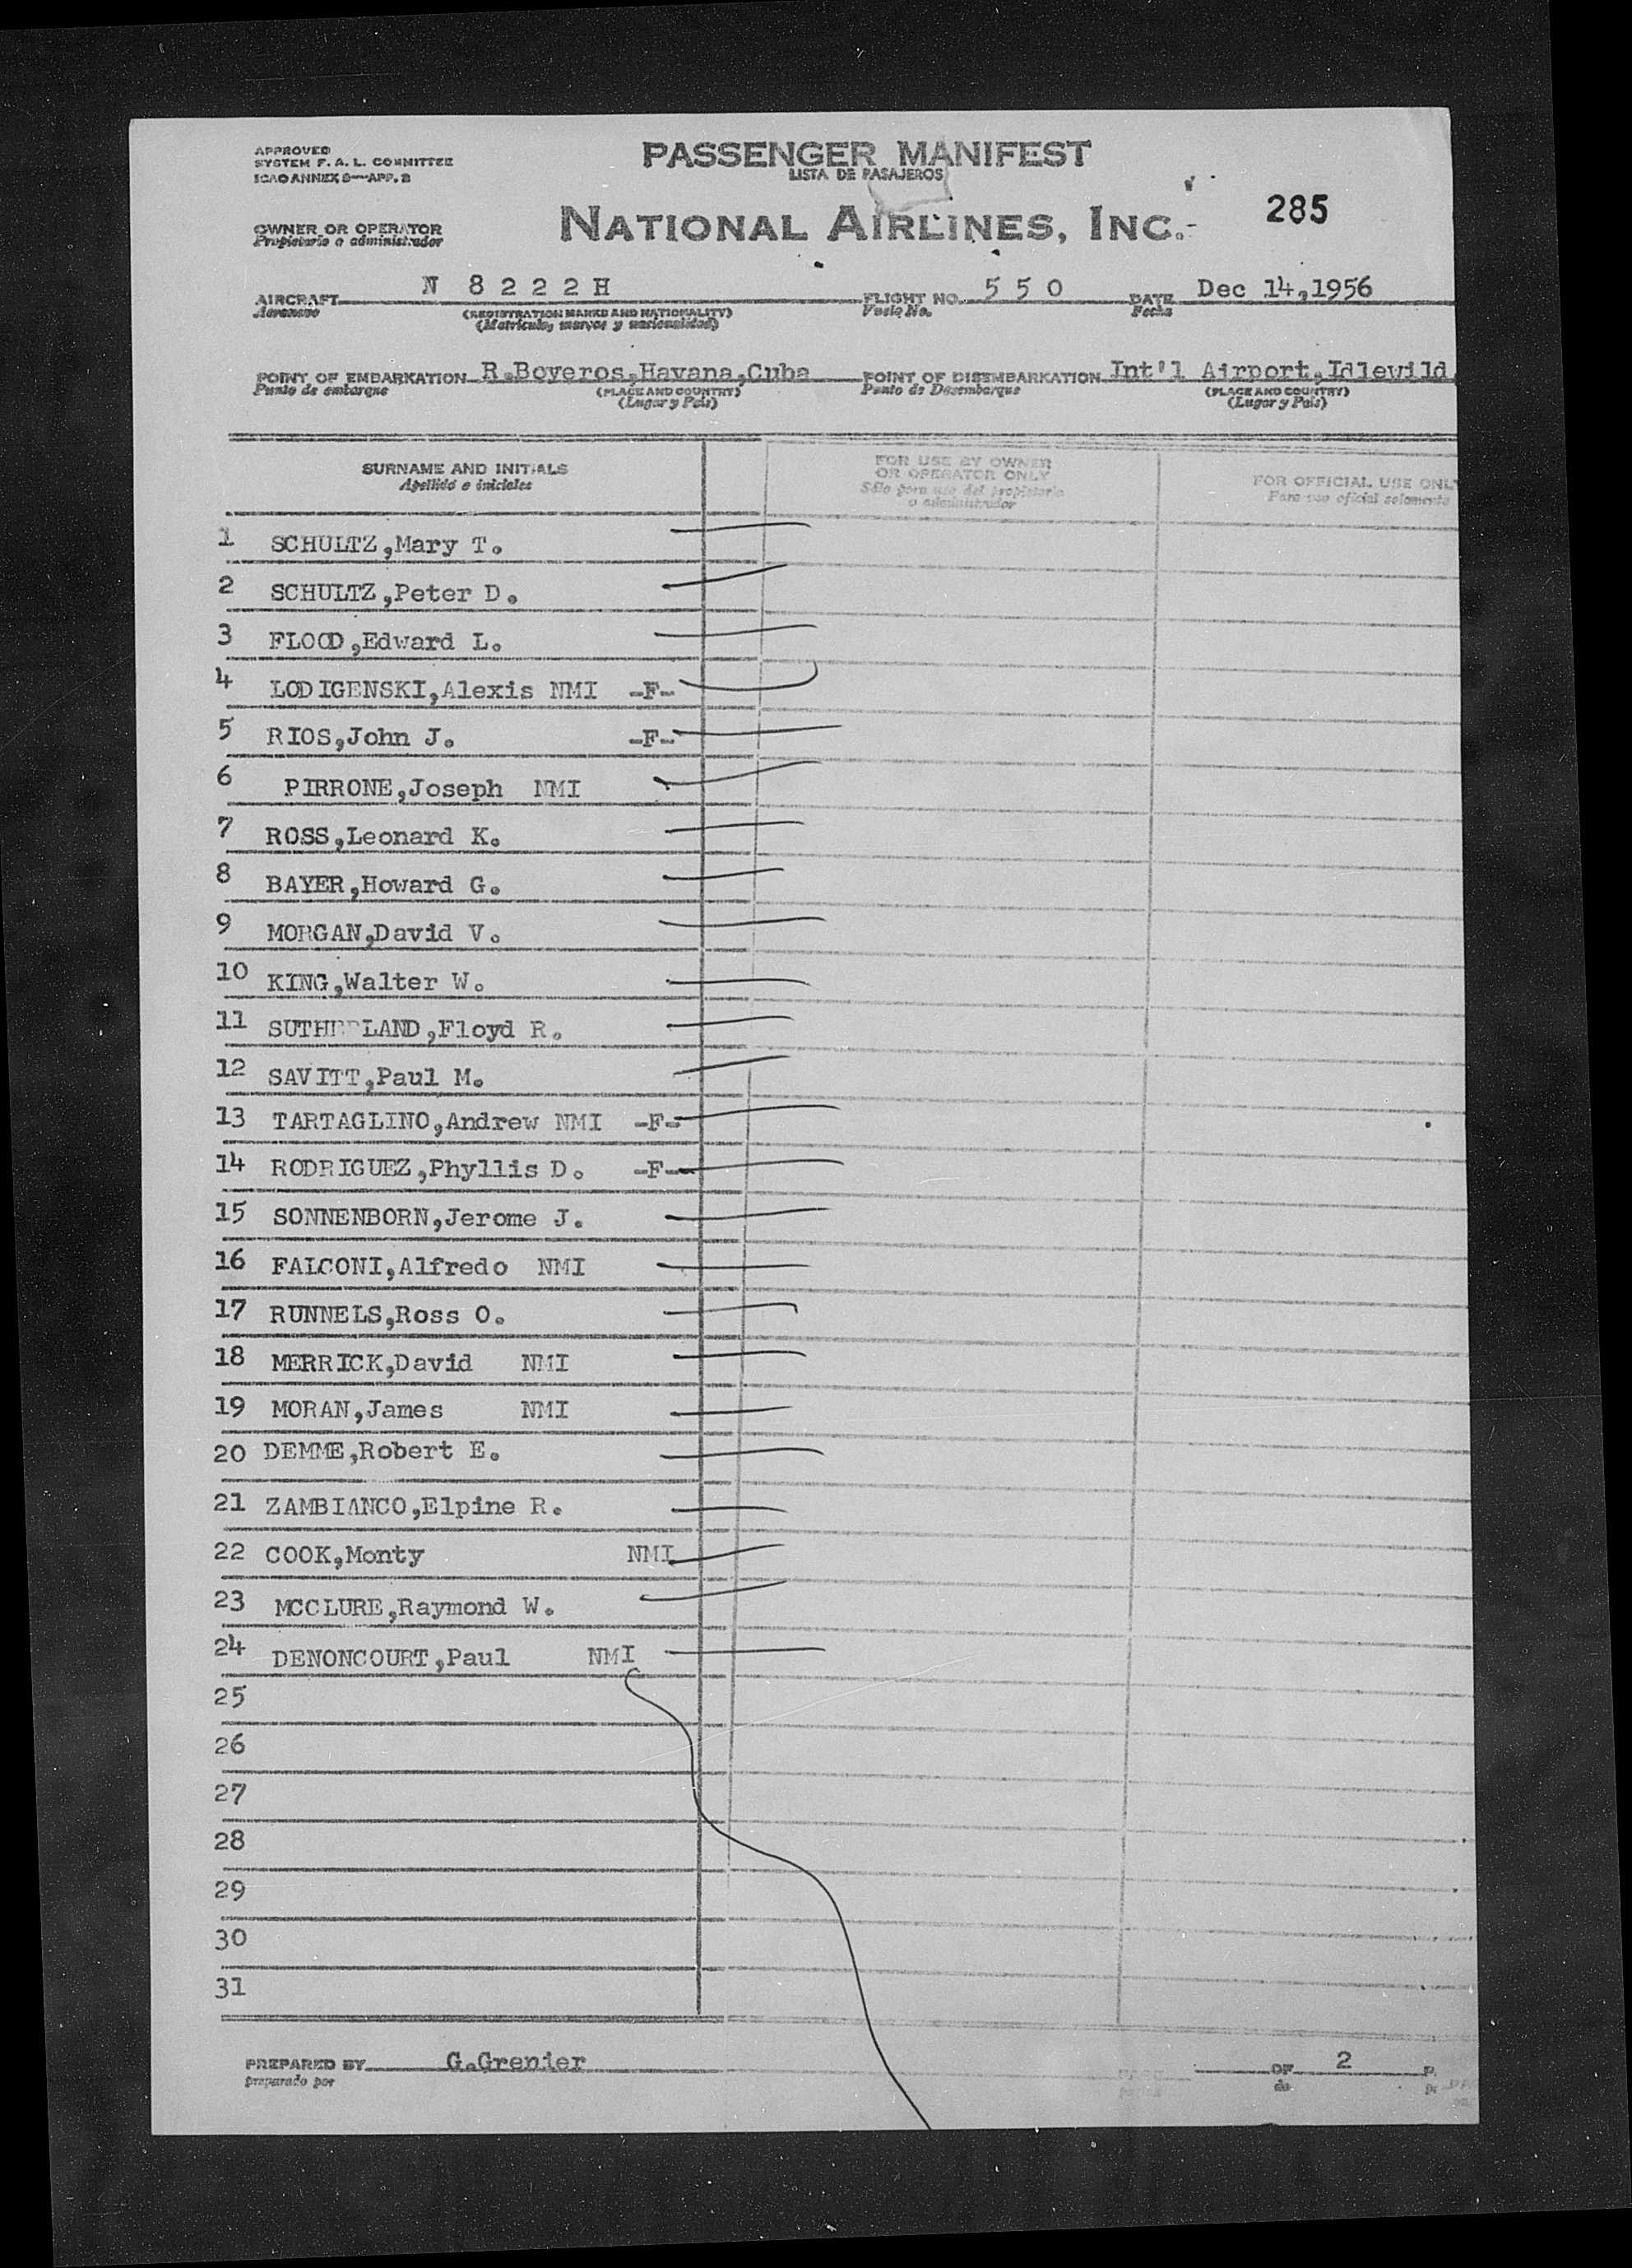 APPROVED
SYSTEM F. A. L. COMMITTEE
ICAO ANNEX 9—APP. 2
PASSENGER MANIFEST
LISTA DE PASAJEROS
285
OWNER OR OPERATOR
Propietario o administrador
NATIONAL AIRLINES, INC.
AIRCRAFT N 8 2 2 2 H FLIGHT NO. 5 5 0 DATE Dec 14,1956
Aeronave (REGISTRATION MARKS AND NATIONALITY) Vuelo No. Fecha
(Matricula, marcas y nacionalidad)
POINT OF EMBARKATION R.Boyeros,Havana,Cuba POINT OF DISEMBARKATION Int'l Airport,Idlewild
Punto de embarque (PLACE AND COUNTRY) Punto de Desembarque (PLACE AND COUNTRY)
(Lugar y Pais) (Lugar y Pais)
SURNAME AND INITIALS FOR USE BY OWNER OR OPERATOR ONLY FOR OFFICIAL USE ONL
Apellido e iniciales Sólo para uso del propietario o administrador Para uso oficial solamente
1 SCHULTZ,Mary T.
2 SCHULTZ,Peter D.
3 FLOOD,Edward L.
4 LODIGENSKI,Alexis NMI -F-
5 RIOS,John J. -F-
6 PIRRONE,Joseph NMI
7 ROSS,Leonard K.
8 BAYER,Howard G.
9 MORGAN,David V.
10 KING,Walter W.
11 SUTHERLAND,Floyd R.
12 SAVITT,Paul M.
13 TARTAGLINO,Andrew NMI -F-
14 RODRIGUEZ,Phyllis D. -F-
15 SONNENBORN,Jerome J.
16 FALCONI,Alfredo NMI
17 RUNNELS,Ross O.
18 MERRICK,David NMI
19 MORAN,James NMI
20 DEMME,Robert E.
21 ZAMBIANCO,Elpine R.
22 COOK,Monty NMI
23 MCCLURE,Raymond W.
24 DENONCOURT,Paul NMI
25
26
27
28
29
30
31
PREPARED BY G.Grenier OF 2
preparado por de